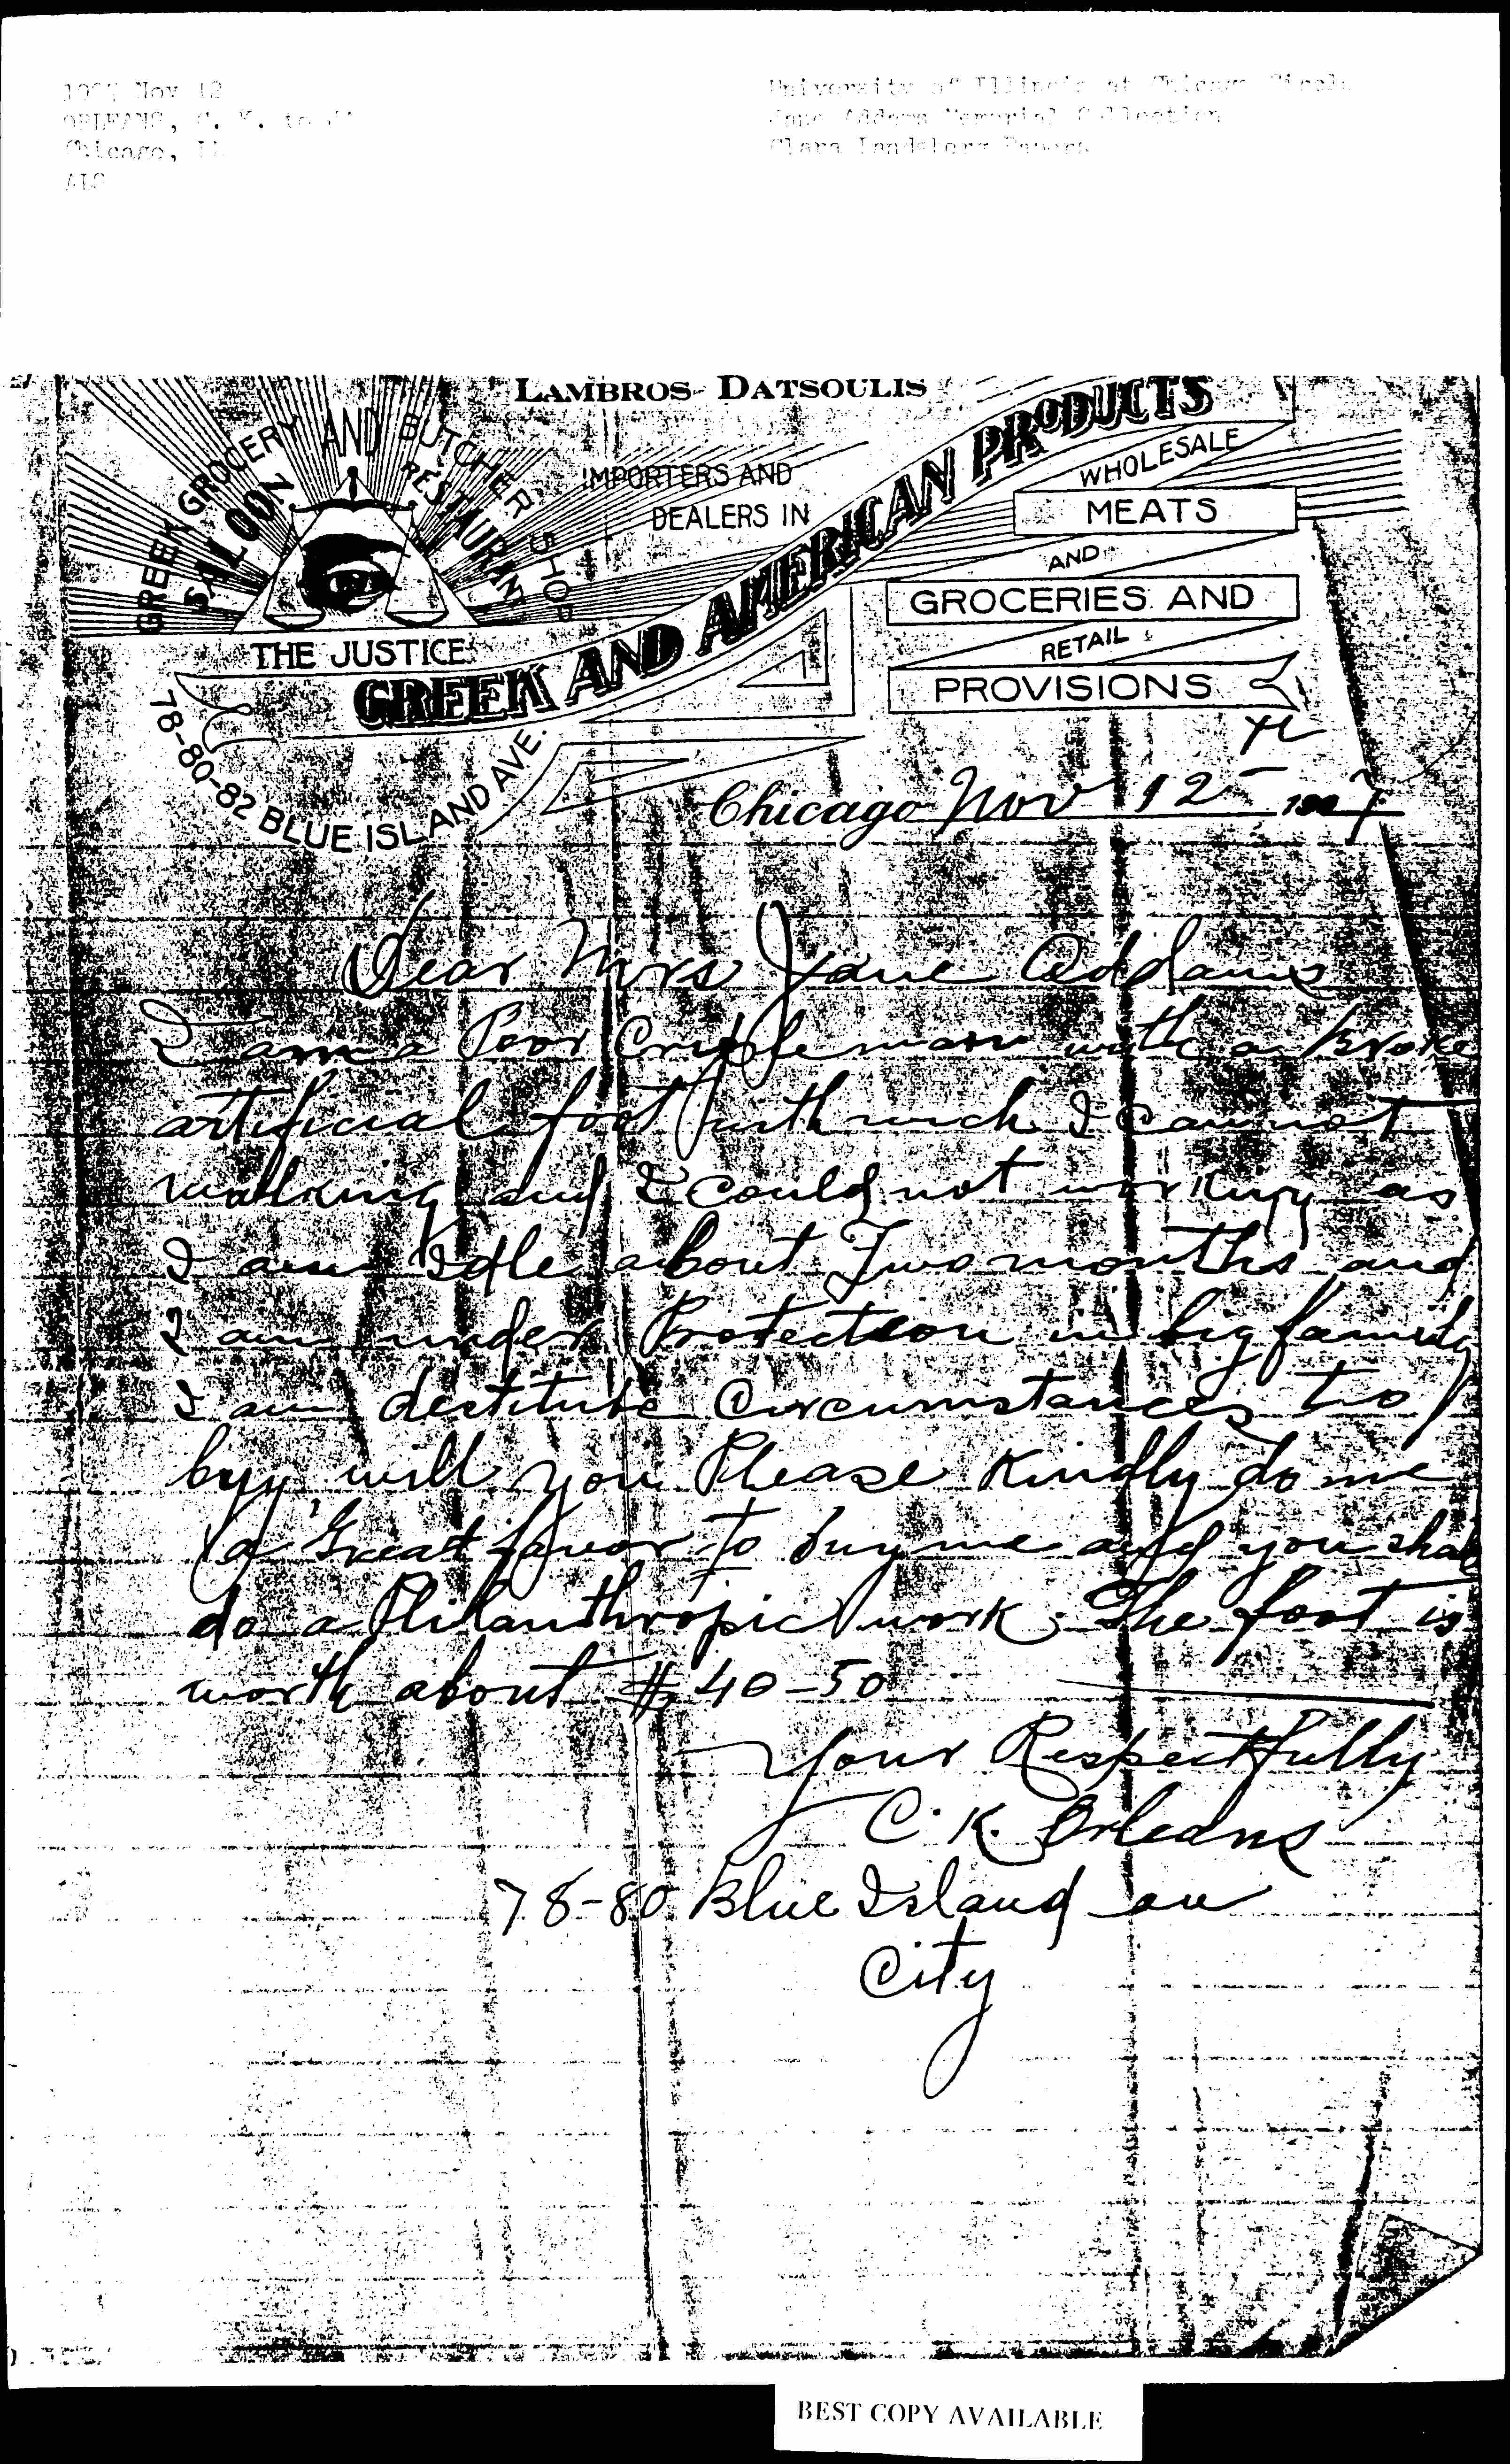 1907 Nov 12
ORLEANS, C. K. to JA
Chicago, IL
ALS
University of Illinois at Chicago Circle
Jane Addams Memorial Collection
Clara Landsberg Papers
LAMBROS DATSOULIS
GREEK GROCERY AND BUTCHER SHOP
SALOON
RESTAURANT
THE JUSTICE
78-80-82 BLUE ISLAND AVE.
IMPORTERS AND
DEALERS IN
GREEK AND AMERICAN PRODUCTS
WHOLESALE
MEATS
AND
GROCERIES AND
RETAIL
PROVISIONS
Chicago Nov 12th 1907
Dear Mrs Jane Addams
I am a Poor Cripple man with a Broke
artificial foot with wich I can not
walking and I could not working as
I am Idle about Two months and
I am under Protection in big family
I am destitute Circumstances to
buy will you Please Kindly do me
a Great favor to buy me and you shall
do a Philanthropic work. The foot is
worth about $ 40-50
Your Respectfully
C. K. Orleans
78-80 Blue Island av
City
BEST COPY AVAILABLE